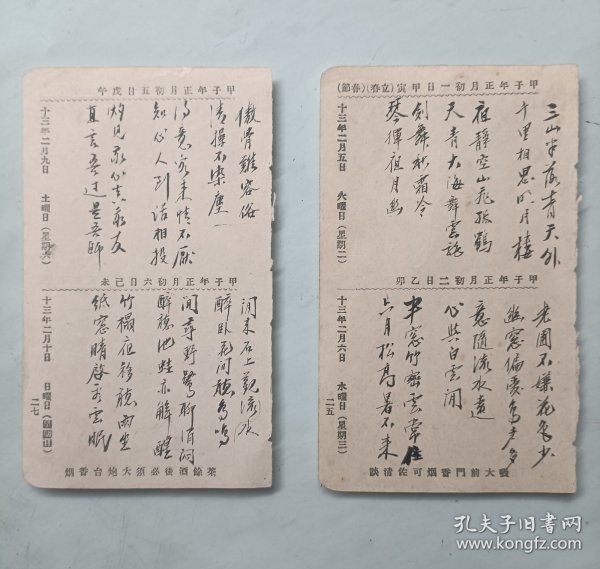 甲子年正月初一日甲寅(立春)(春節)
十三年二月五日 火曜日(星期二)
三山半落青天外
千里相思明月楼
夜静空山飛孤鶴
天青大海舞雲龍
劍舞秋霜冷
琴揮夜月幽
甲子年正月初二日乙卯
十三年二月六日 水曜日(星期三)
二五
老圃不嫌花色少
幽窓偏愛鳥声多
意随流水遠
心與白雲閒
半窓竹密雲常住
六月松高暑不来
吸大前門香烟可佐清談
甲子年正月初五日戊午
十三年二月九日 土曜日(星期六)
傲骨難容俗
清操不染塵
得意客来情不厭
知心人到話相投
灼見求心真益友
直言吾过是吾師
甲子年正月初六日己未
十三年二月十日 日曜日
二七
閒来石上觀流水
醉卧花间聴鳥鳴
閒尋野鷺聊消闷
醉聴池蛙亦解醒
竹榻夜移聴雨坐
紙窓晴啓看雲眠
茶餘酒後必須大炮台香烟
孔夫子旧书网
www.kongfz.com